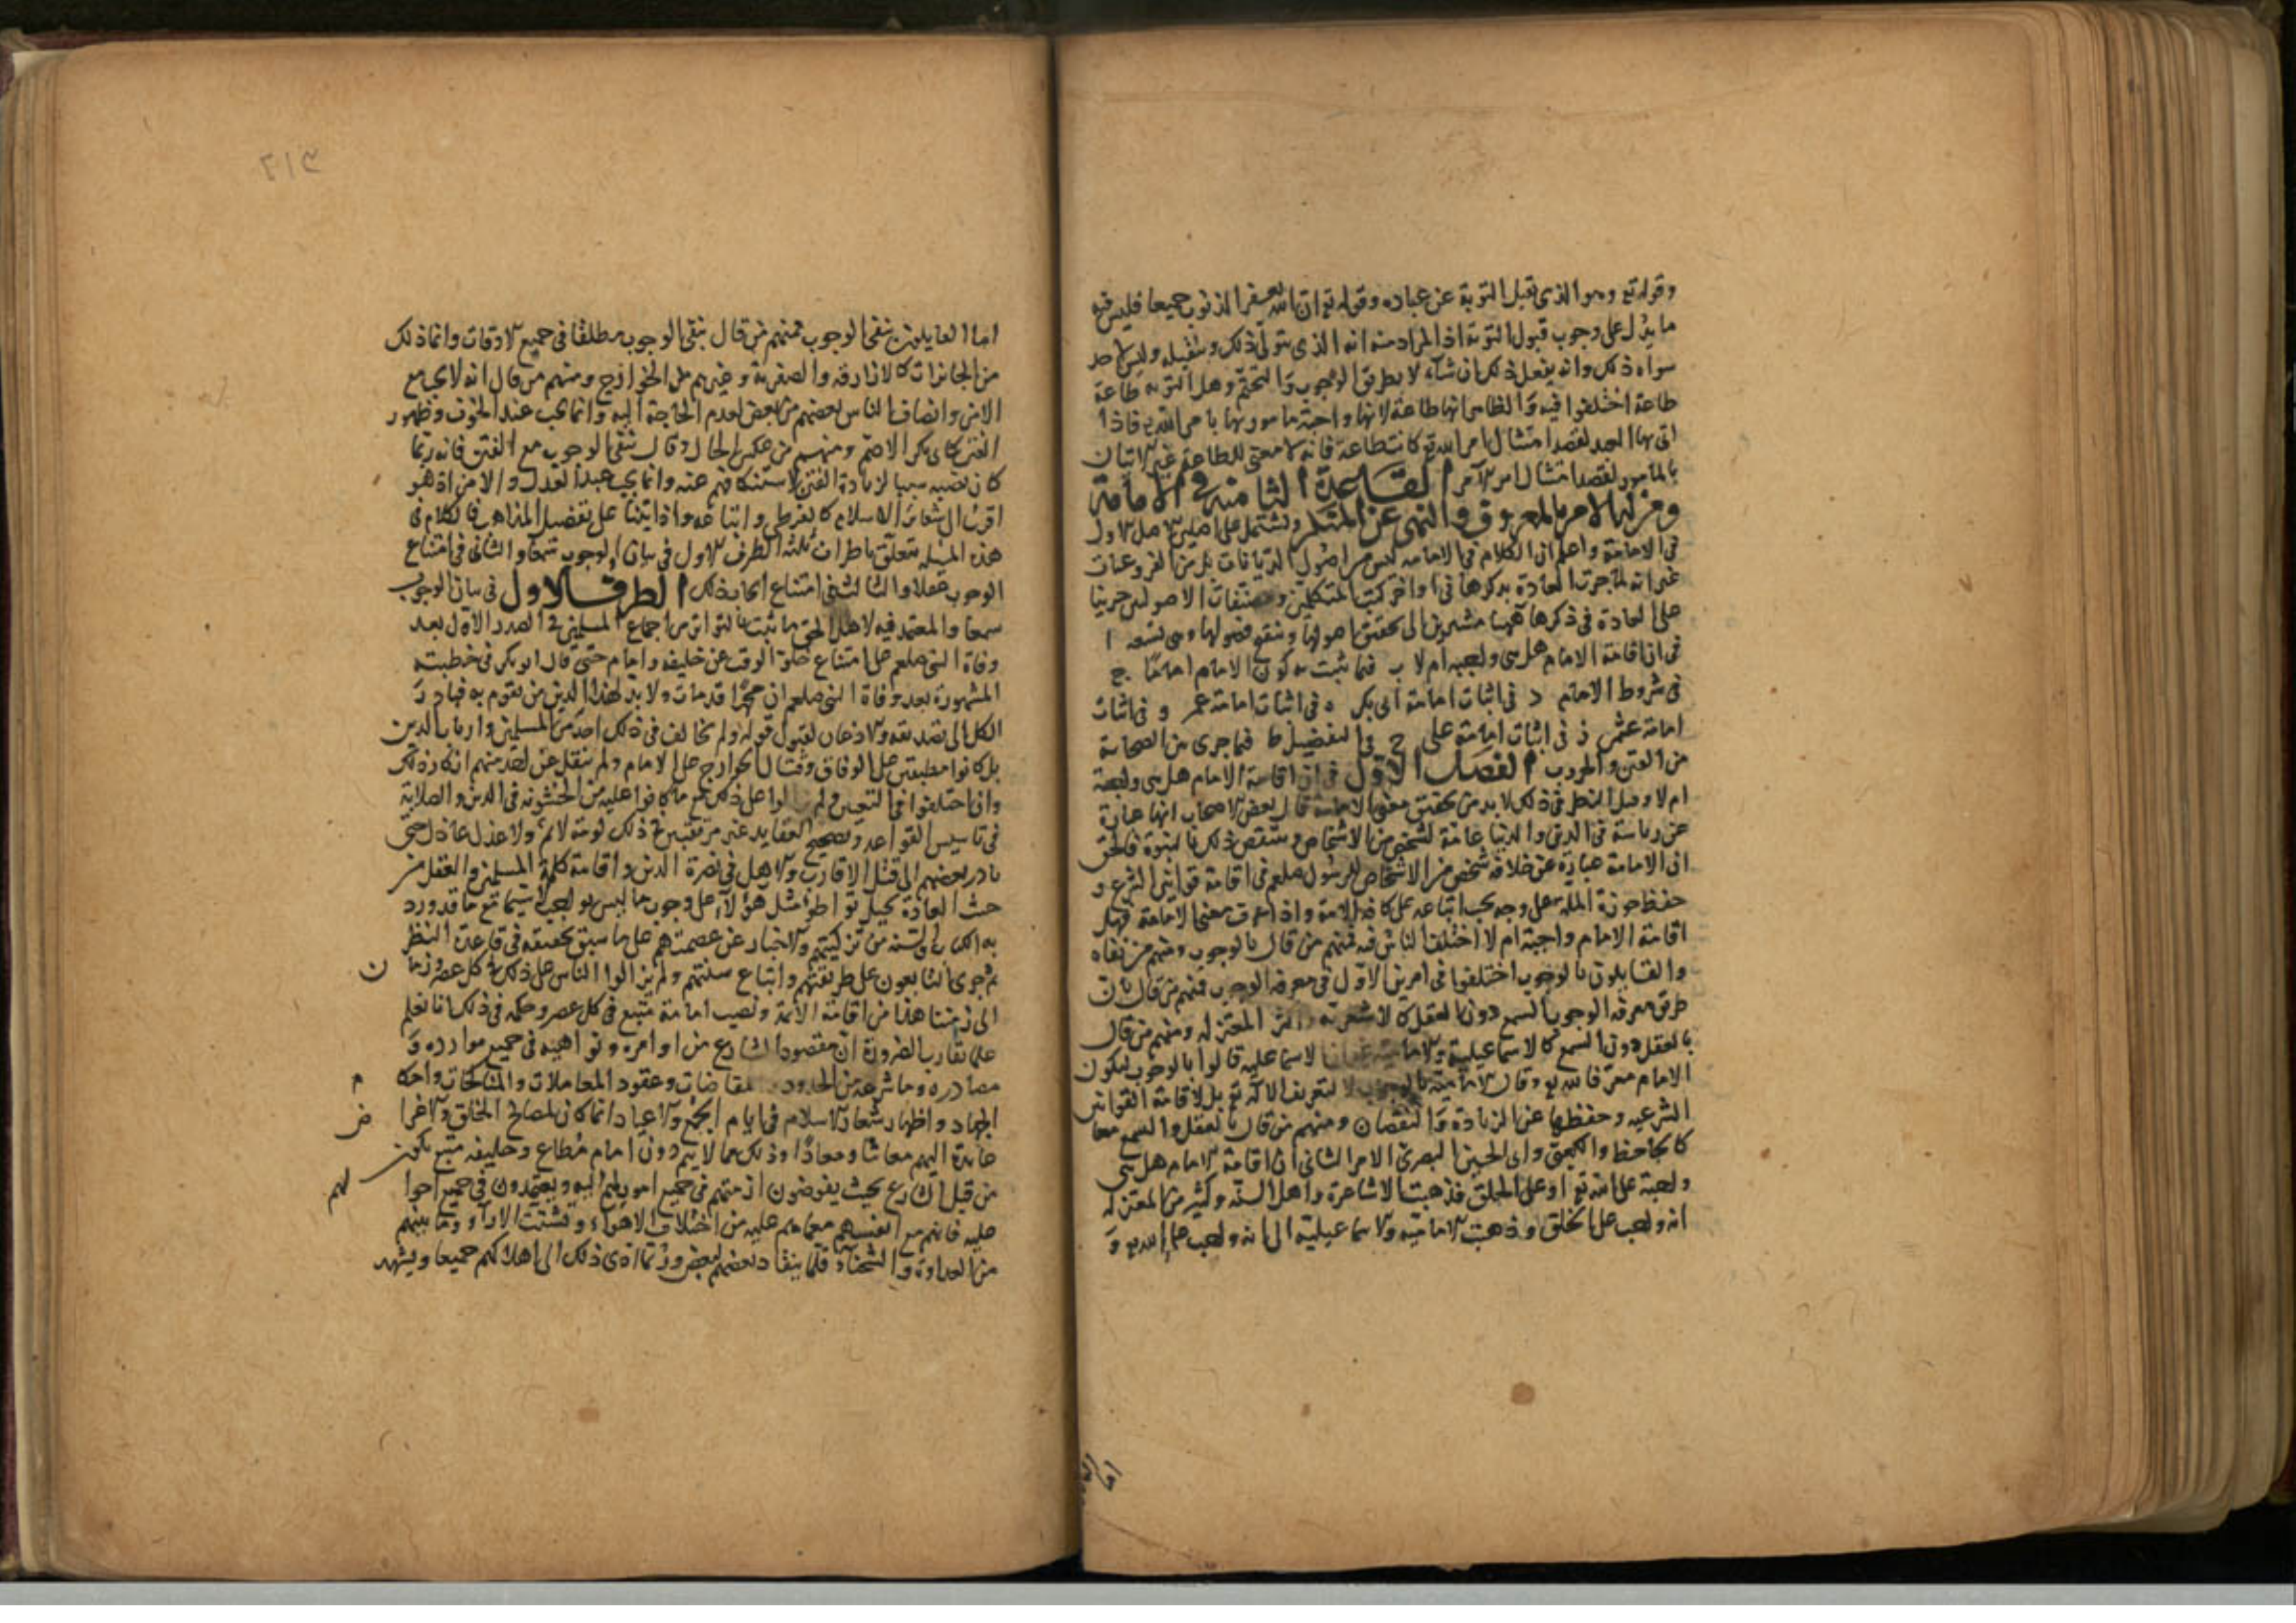 وقوله تع وهو الذى يقبل التوبة عن عباده وقوله تع ان الله يغفر الذنوب جميعا فليس فيه
ما يدل على وجوب قبول التوبة اذ المراد منه انه الذى يتولى ذلك ويتقبله وليس لاحد
سواه ذلك وانه يفعل ذلك ان شاء لا بطريق الوجوب والتحتم وهل التوبة طاعة
طاعة اختلفوا فيه والظاهر انها طاعة لانها واجبة مامور بها بامر الله تع فاذا
اتى بها العبد لقصد امتثال امر الله تع كانت طاعة فانه لا معنى للطاعة غير الاتيان
بالمامور لقصد امتثال امر الآمر القاعدة الثامنة في الامامة
ومن له الامر بالمعروف والنهى عن المنكر وتشتمل على اصلين الاصل الاول
فى الامامة واعلم ان الكلام فى الامامة ليس من اصول الديانات بل من الفروعيات
غير انه لما جرت العادة بذكرها فى اواخر كتب المتكلمين ومصنفات الاصوليين جرينا
على العادة فى ذكرها ههنا مشيرين الى تحقيق اصولها وتنقيح فصولها وهى تسعه ا
فى ان اقامة الامام هل هى واجبه ام لا ب فيما يثبت به كون الامام اماما ج
فى شروط الامام د فى اثبات امامة ابى بكر ه فى اثبات امامة عمر و فى اثبات
امامة عثمن ز فى اثبات امامة على ح فى التفضيل ط فيما جرى بين الصحابة
من الفتن والحروب الفصل الاول فى ان اقامة الامام هل هى واجبة
ام لا وقبل النظر فى ذلك لا بد من تحقيق معنى الامامة قال بعض الاصحاب انها عبارة
عن رياسة فى الدين والدنيا عامة لشخص من الاشخاص وينتقض ذلك بالنبوة فالحق
ان الامامة عبارة عن خلافة شخص من الاشخاص للرسول صلعم فى اقامة قوانين الشرع و
حفظ حوزة الملة على وجه يجب اتباعه على كافة الامة واذا عرفت معنى الامامة فهل
اقامة الامام واجبة ام لا اختلف الناس فيه فمنهم من قال بالوجوب ومنهم من نفاه
والقايلون بالوجوب اختلفوا فى امرين الاول فى معرفة الوجوب فمنهم من قال ان
طريق معرفة الوجوب السمع دون العقل كالاشعرية واكثر المعتزله ومنهم من قال
بالعقل دون السمع كالاسماعيلية والامامية الاسماعيلية قالوا بالوجوب ليكون
الامام معرفا لله تع وقال الامامية بالوجوب لا لتعريف الاله تع بل لاقامة القوانين
الشرعيه وحفظها عن الزيادة والنقصان ومنهم من قال بالعقل والسمع معا
كالجاحظ والكعبى وابى الحسين البصرى الامر الثانى ان اقامة الامام هل هى
واجبة على الله تع او على الخلق فذهبت الاشاعرة واهل السنه وكثير من المعتزله
انه واجب على الخلق وذهبت الامامية والاسماعيلية الى انه واجب على الله تع و
اما
٢١٣
اما القايلون بنفى الوجوب فمنهم من قال بنفى الوجوب مطلقا فى جميع الاوقات وانما ذلك
من الجائزات كالازارقه والصفرية وغيرهم من الخوارج ومنهم من قال انه لا يجب مع
الامن وانصاف الناس بعضهم من بعض لعدم الحاجة اليه وانما يجب عند الخوف وظهور
الفتن كابى بكر الاصم ومنهم من عكس الحال وقال بنفى الوجوب مع الفتن فانه ربما
كان نصبه سببا لزيادة الفتن لاستنكافهم عنه وانما يجب عند العدل والامن اذ هو
اقرب الى شعائر الاسلام كالفوطى واتباعه واذ اتينا على تفصيل المذاهب فالكلام فى
هذه المسئله متعلق باطراف ثلثه الطرف الاول فى بيان الوجوب سمعا والثانى فى امتناع
الوجوب عقلا والثالث فى امتناع ايجاب ذلك الطرف الاول فى بيان الوجوب
سمعا والمعتمد فيه لاهل الحق ما ثبت بالتواتر من اجماع المسلمين فى الصدر الاول بعد
وفاة النبى صلعم على امتناع خلو الوقت عن خليفه وامام حتى قال ابو بكر فى خطبته
المشهورة بعد وفاة النبى صلعم ان محمدا قد مات ولا بد لهذا الدين من يقوم به فبادر
الكل الى تصديقه والاذعان لقبول قوله ولم يخالف فى ذلك احد من المسلمين وارباب الدين
بل كانوا مطبقين على الوفاق وقتال الخوارج على الامام ولم ينقل عن احد منهم انكار ذلك
وان اختلفوا فى التعيين ولم على ذلك مع ما كانوا عليه من الخشونه فى الدين والصلابة
فى تاسيس القواعد وتصحيح العقايد غير مرتقبين فى ذلك لومة لائم ولا عذل عاذل حتى
بادر بعضهم الى قتل الاقارب والاهل فى نصرة الدين واقامة كلمة المسلمين والعقل من
حيث العادة يحيل تواطؤ مثل هؤلاء على وجوب ما ليس بواجب لا سيما مع ما قد ورد
به الكتاب والسنه من تزكيتهم والاخبار عن عصمتهم على ما سبق تحقيقه فى قاعدة النظر
ثم جرى التابعون على طريقتهم واتباع سنتهم ولم يزالوا الناس على ذلك فى كل عصر وزما ن
الى زمننا هذا من اقامة الائمة ونصب امامة متبع فى كل عصر وحكمه فى ذلك انا نعلم
علما يقارب الضرورة ان مقصود الشارع من اوامره ونواهيه فى جميع موارده و
مصادره وما شرعه من الحدود والمقاضات وعقود المعاملات والمناكحات واحكا م
الجهاد واظهار شعار الاسلام فى ايام الجمع والاعياد انما كان لمصالح الخلق والاغرا ض
عايدة اليهم معاشا ومعادا وذلك مما لا يتم دون امام مطاع وخليفه متبع يكون
من قبل الشارع بحيث يفوضون ازمتهم فى جميع امورهم اليه ويعتمدون فى جميع احوا لهم
عليه فانهم مع انفسهم مع ما هم عليه من اختلاف الاهواء وتشتت الاراء وما بينهم
من العداوة والشحناء قلما ينقاد بعضهم لبعض وربما ادى ذلك الى اهلاكهم جميعا ويشهد